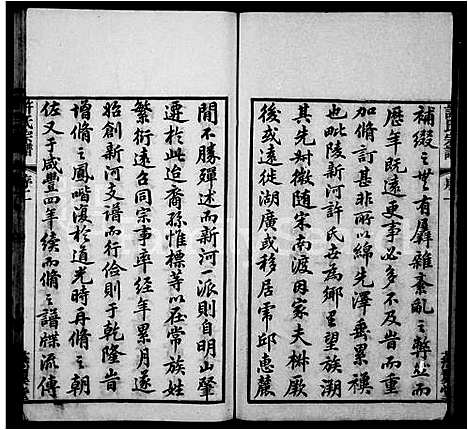 補綴之世有羼雜紊亂之弊並而
歷年既遠更事必多不及昔而重
加脩訂甚非所以綿先澤垂累禩
也毗陵新河許氏世為鄉里望族溯
其先對徵隨宋南渡因家夫椒厥
後或遠徙湖廣或移居常邱惠麓
間不勝殫述而新河一派則自明山肇
遷於此迨裔孫惟標等以在常族姓
繁衍遠召同宗事率經年累月遂
始創新河支譜而行佮則于乾隆昔
增脩之鳳喈復於道光時再脩之朝
佐又于咸豐四年續而脩之譜牒流傳
許氏宗譜
序